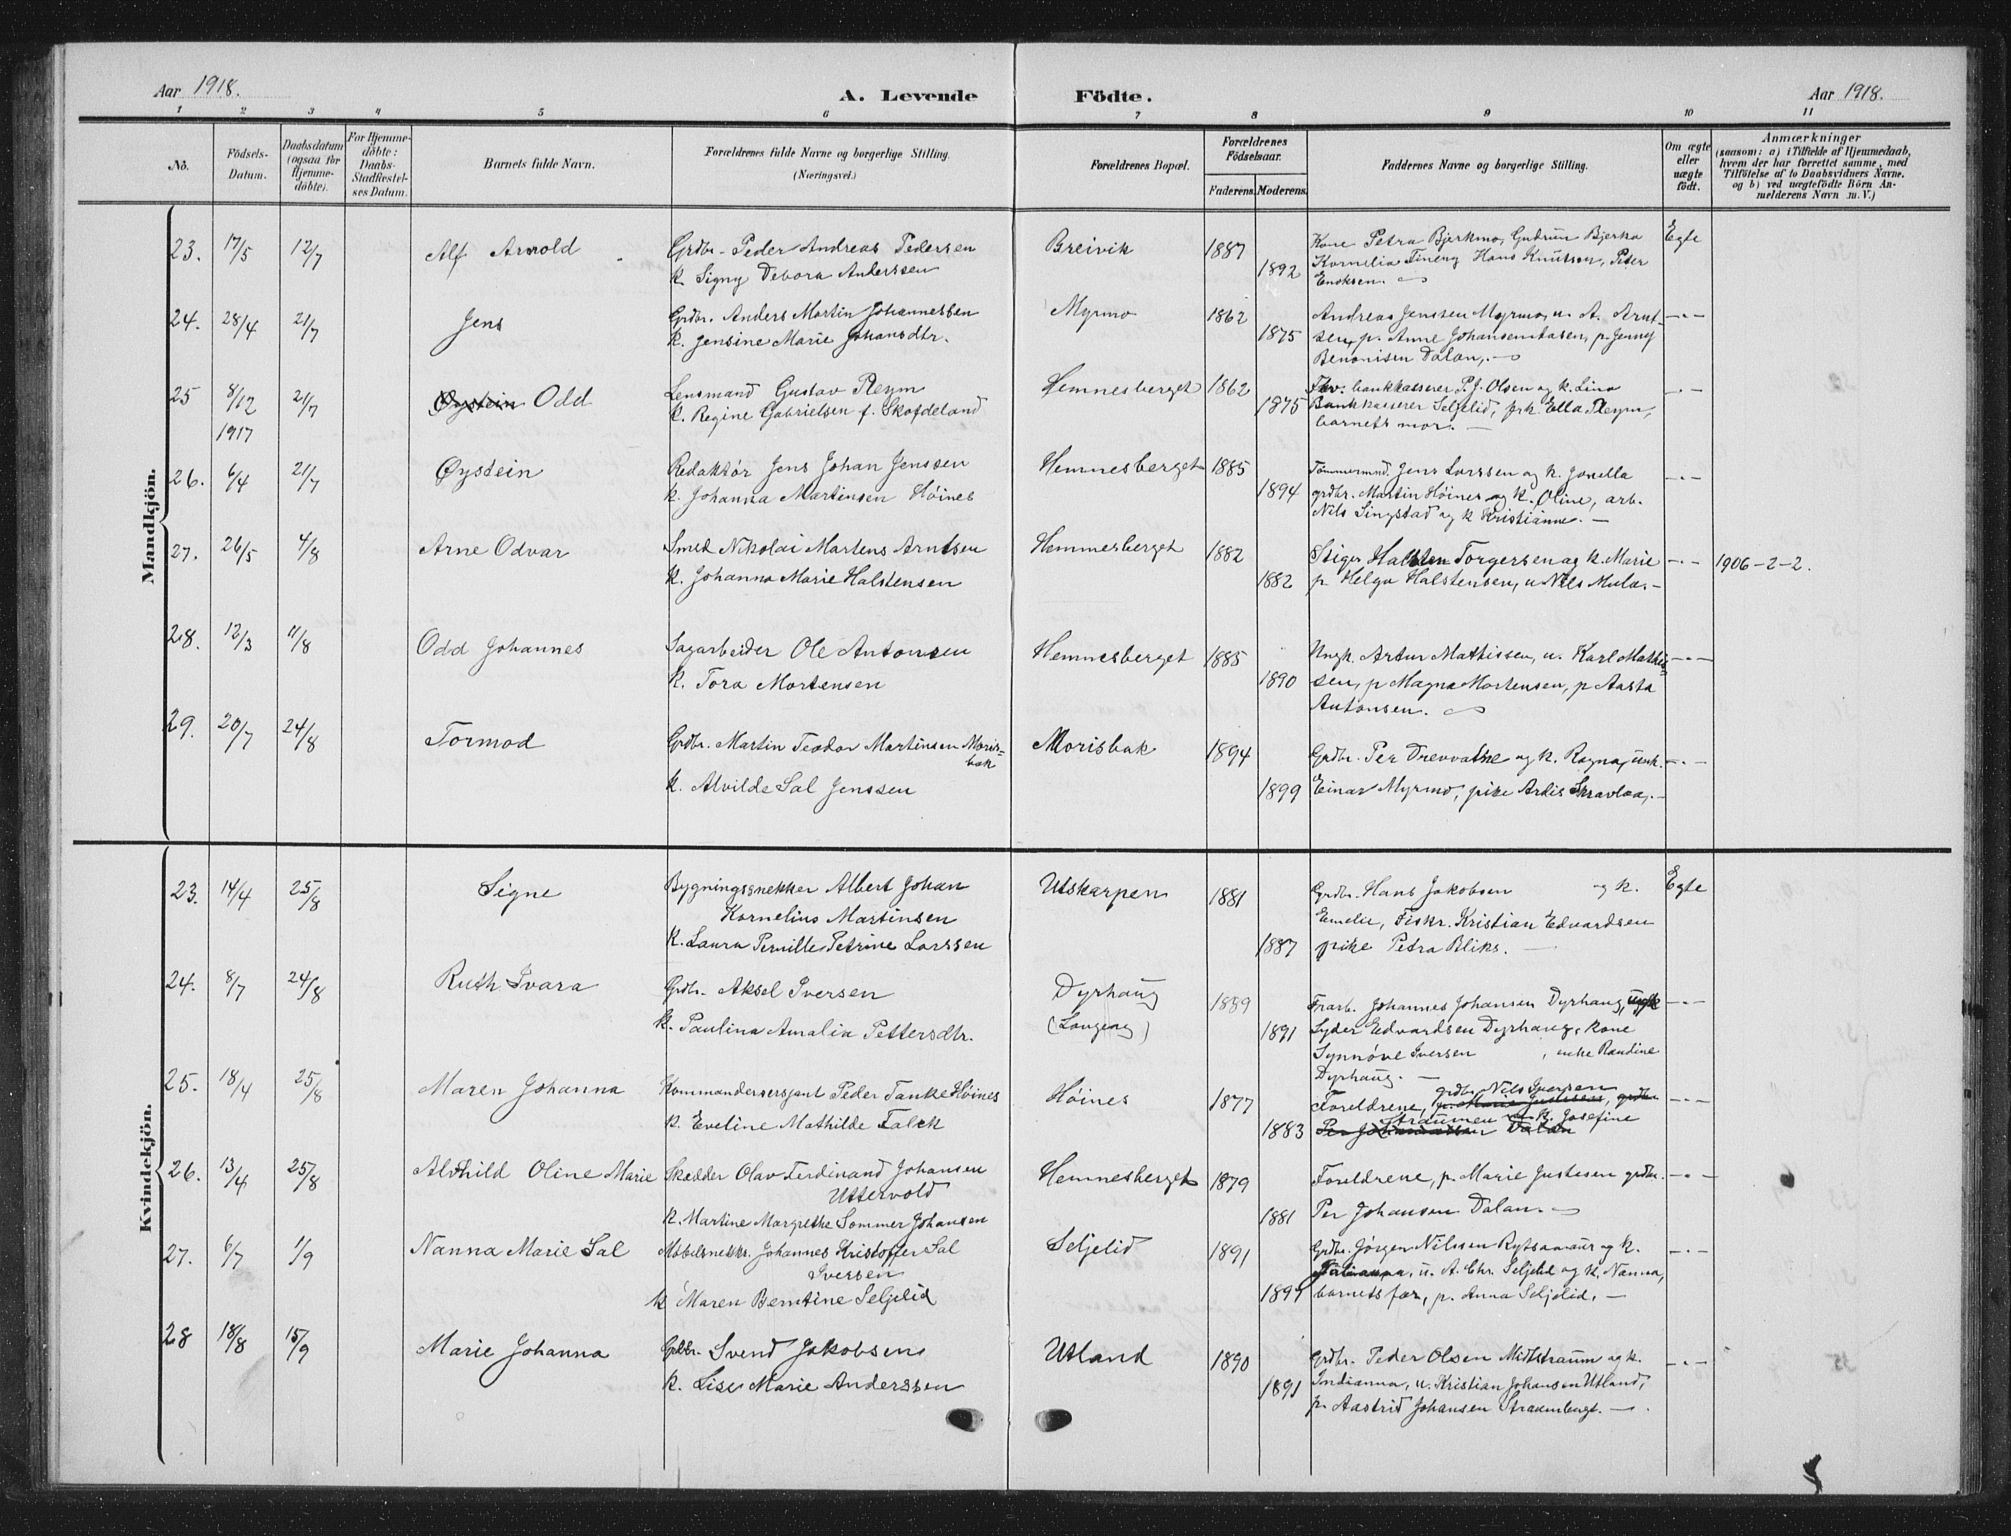 Aar 1918.
A. Levende Födte.
Aar 1918.
1 2 3 4 5 6 7 8 9 10 11
No.
Födsels-Datum.
Daabsdatum (ogsaa for Hjemme-döbte).
For Hjemme-döbte: Daabs-Stadfæstel-ses Datum.
Barnets fulde Navn.
Forældrenes fulde Navne og borgerlige Stilling. (Næringsvei.)
Forældrenes Bopæl.
Forældrenes Födselsaar.
Faderens. Moderens.
Faddernes Navne og borgerlige Stilling.
Om ægte eller uægte födt.
Anmærkninger
(saasom: a) i Tilfælde af Hjemmedaab,
hvem der har forrettet samme, med
Tilföielse af to Daabsvidners Navne.
og b) ved uægtefödte Börn An-
melderens Navn m. V.)
Mandkjön.
23. 17/5 12/7 Alf Arnold
Grdbr. Peder Andreas Pedersen
k. Signy Debora Anderssen
Breivik 1887 1892
Kone Petra Bjerkmo, Gudrun Bjerka
Kornelia Fineng Hans Knutsen, Peter
Enoksen.
Egte
24. 28/4 21/7 Jens
Grdbr. Anders Martin Johannessen
k. Jensine Marie Johansdtr.
Myrmo 1862 1875
Andreas Jenssen Myrmo, u. A. Arnt-
sen, p. Anne Johansen, p. Jenny
Benonisen Dalan, -
-"-
25 8/12 1917 21/7 Øystein Odd
Lensmand Gustav Pleym
k. Regine Gabrielsen f. Skofdeland
Hemnesberget 1862 1875
Fhv. bankkasserer P. J. Olsen og k. Lina
Bankkasserer Seljelid, frk. Ella Pleym,
barnets mor. -
-"-
26. 6/4 21/7 Øystein
Redaktör Jens Johan Jenssen
k. Johanna Martinsen Höines
Hemnesberget 1885 1894
Tömmermnd. Jens Larssen og k. Jonella
grdbr. Martin Höines og k. Oline, arb.
Nils Singstad og k Kristianne. -
-"-
27. 26/5 4/8 Arne Odvar
Smed Nikolai Martens Arntsen
k. Johanna Marie Halstensen
Hemnesberget 1882 1882
Stiger Halsten Torgersen og k. Marie
p. Helga Halstensen, u Nils Mula. -
-"- 1906-2-2.
28. 12/3 11/8 Odd Johannes
Sagarbeider Ole Antonsen
k. Tora Mortensen
Hemnesberget 1885 1890
Ungk. Artur Mathissen, u. Karl Mathis-
sen, p Magna Mortensen, p Aasta
Antonsen.
-"-
29. 20/7 24/8 Tormod
Grdbr. Martin Teodor Martinsen Moris-
bak
k. Alvilde Sal Jenssen
Morisbak 1894 1899
Grdbr. Per Drevvatne og k. Ragna, unk.
Einar Myrmo, pike Ardis Skravlaa, -
-"-
Kvindekjön.
23. 14/4 25/8 Signe
Bygningssnekker Albert Johan
Kornelius Martinsen
k. Laura Pernille Petrine Larssen
Utskarpen 1881 1887
Grdbr. Hans Jakobsen og k.
Emelie, Fiskr. Kristian Edvardsen
pike Petra Bliks. -
Egte
24. 8/7 24/8 Ruth Ivara
Grdbr. Aksel Iversen
k. Paulina Amalia Pettersdtr.
Dyrhaug
(Langeng)
1889 1891
Frarb. Johannes Johansen Dyrhaug, ungk
Lyder Edvardsen Dyrhaug, kone
Synnöve Iversen , enke Randine
Dyrhaug. -
-"-
25. 18/4 25/8 Maren Johanna
Kommandersersjant Peder Tanke Höines
k. Eveline Mathilde Falck
Höines 1877 1883
grdbr. Nils Iversen
Foreldrene, p. Marie Justesen, grdbr.
Straumen og k. Josefine
Per Johanssen Dalan
-"-
26. 13/4 25/8 Alvhild Oline Marie
Skrædder Olav Ferdinand Johansen
Uttervold
k. Martine Margrethe Sommer Johansen
Hemnesberget 1879 1881
Foreldrene, p. Marie Justesen grdbr.
Per Johansen Dalan. -
-"-
27. 6/7 1/9 Nanna Marie Sal
Möbelsnekkr. Johannes Kristoffer Sal
Iversen
k Maren Berntine Seljelid
Seljelid 1891 1897
Grdbr. Jörgen Nilssen Rytsaamaur og k.
Julianna, u. A. Chr. Seljelid og k. Nanna,
barnets far, p. Anna Seljelid, -
-"-
28 18/8 15/9 Marie Johanna
Grdbr. Svend Jakobsen
k. Lise Marie Anderssen
Utland 1890 1891
Grdbr. Peder Olsen Midtstraum og k.
Indianna, u. Kristian Johansen Utland,
p. Aastrid Johansen Straumbugt. -
-"-